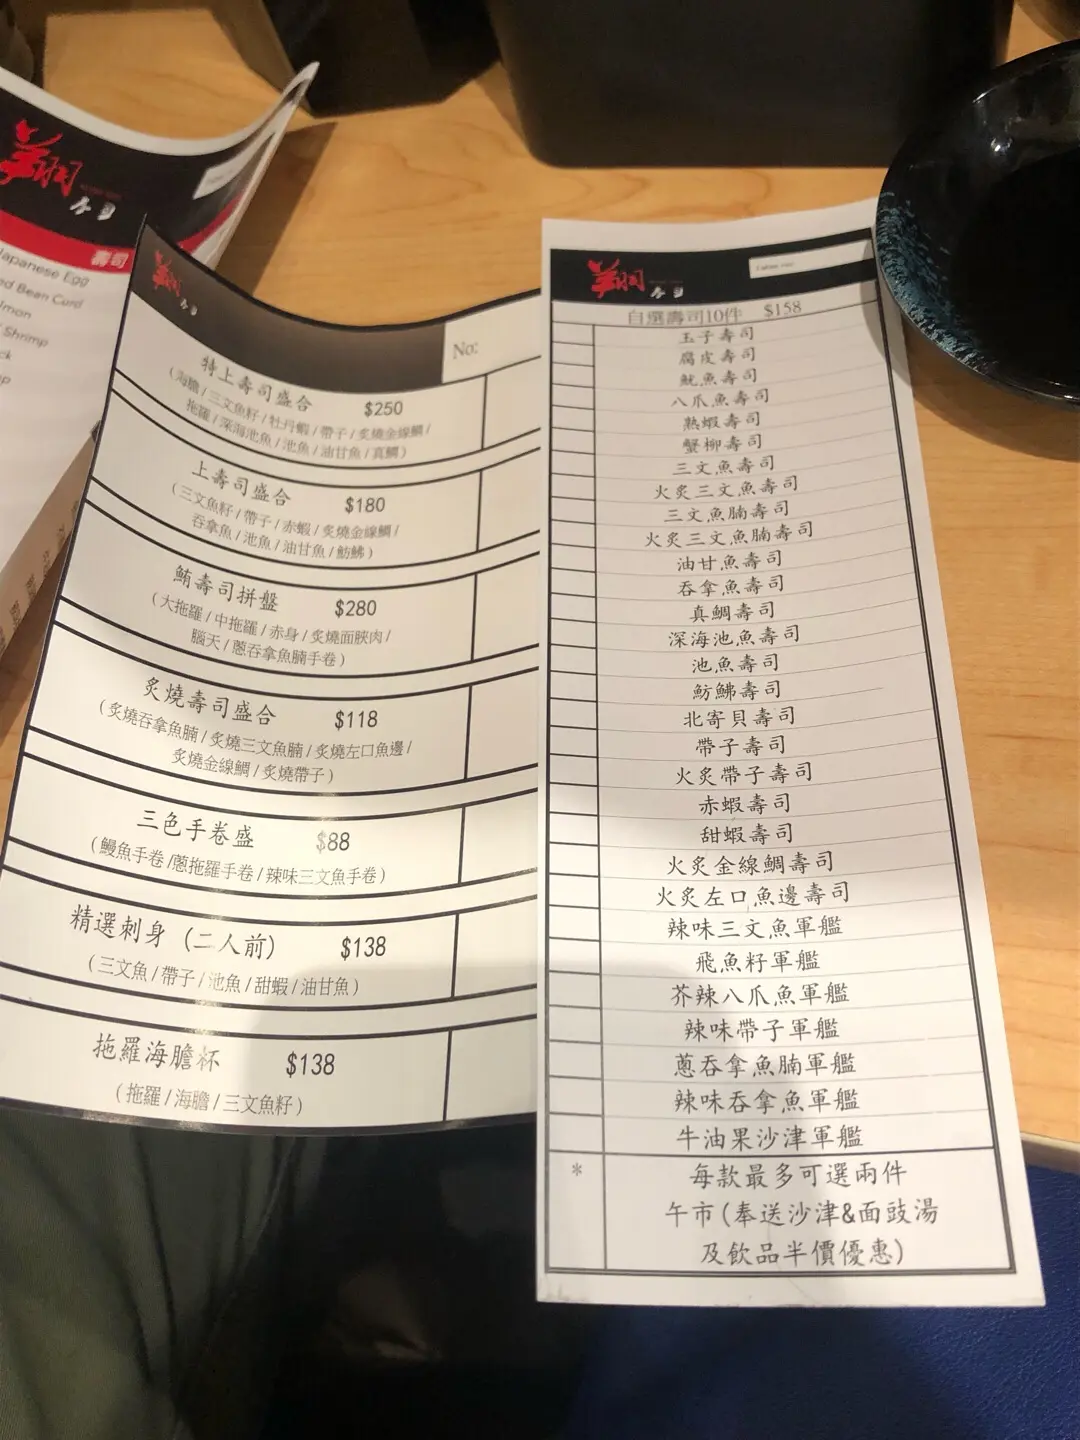 翔
壽司
壽司
Japanese Egg
ed Bean Curd
lmon
Shrimp
ck
翔
壽司
No:
特上壽司盛合 $250
(海膽/三文魚籽/牡丹蝦/帶子/炙燒金線鯛/
拖羅/深海池魚/池魚/油甘魚/真鯛)
上壽司盛合 $180
(三文魚籽/帶子/赤蝦/炙燒金線鯛/
吞拿魚/池魚/油甘魚/魴鮄)
鮪壽司拼盤 $280
(大拖羅/中拖羅/赤身/炙燒面頰肉/
腦天/蔥吞拿魚腩手卷)
炙燒壽司盛合 $118
(炙燒吞拿魚腩/炙燒三文魚腩/炙燒左口魚邊/
炙燒金線鯛/炙燒帶子)
三色手卷盛 $88
(鰻魚手卷/蔥拖羅手卷/辣味三文魚手卷)
精選刺身 (二人前) $138
(三文魚/帶子/池魚/甜蝦/油甘魚)
拖羅海膽杯 $138
(拖羅/海膽/三文魚籽)
翔
壽司
自選壽司10件 $158
玉子壽司
腐皮壽司
魷魚壽司
八爪魚壽司
熟蝦壽司
蟹柳壽司
三文魚壽司
火炙三文魚壽司
三文魚腩壽司
火炙三文魚腩壽司
油甘魚壽司
吞拿魚壽司
真鯛壽司
深海池魚壽司
池魚壽司
魴鮄壽司
北寄貝壽司
帶子壽司
火炙帶子壽司
赤蝦壽司
甜蝦壽司
火炙金線鯛壽司
火炙左口魚邊壽司
辣味三文魚軍艦
飛魚籽軍艦
芥辣八爪魚軍艦
辣味帶子軍艦
蔥吞拿魚腩軍艦
辣味吞拿魚軍艦
牛油果沙津軍艦
* 每款最多可選兩件
午市(奉送沙津&面豉湯
及飲品半價優惠)